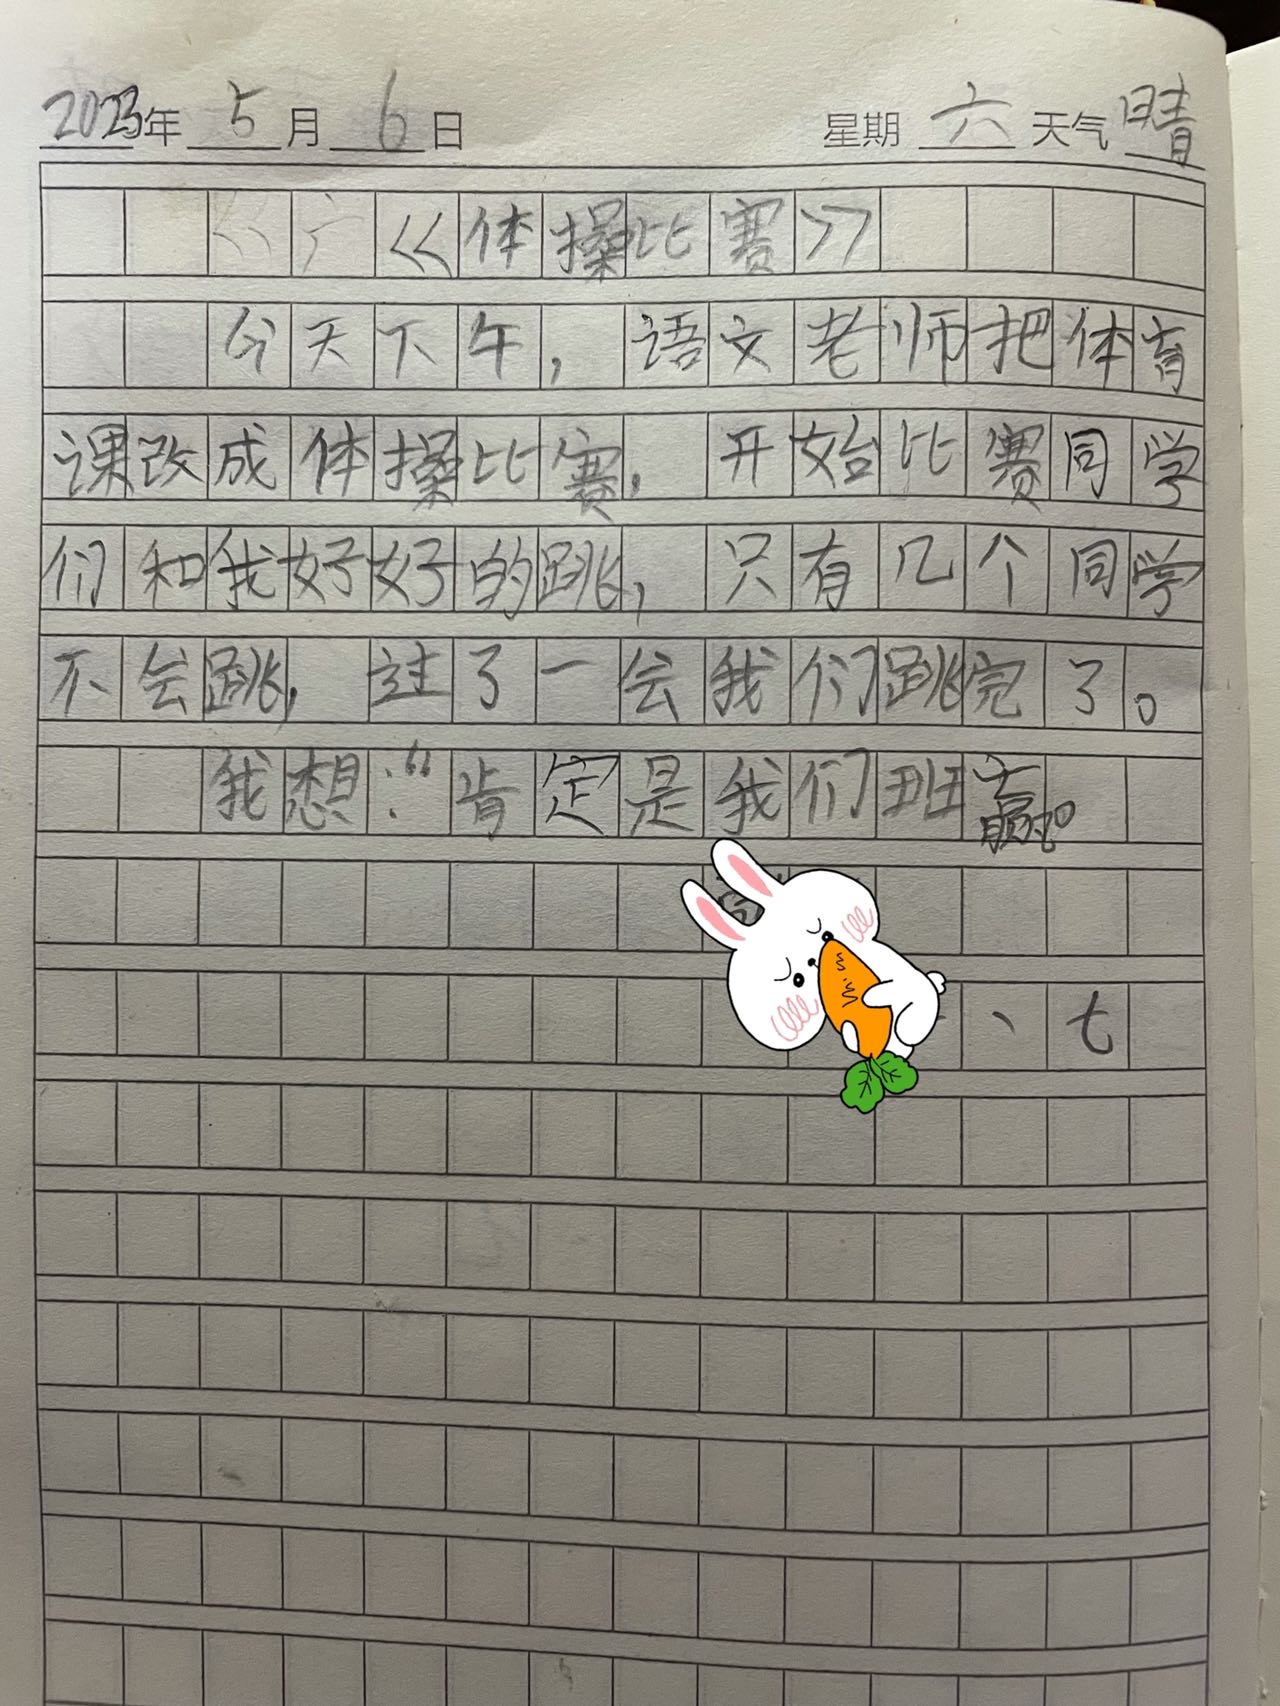 2023年 5月 6日 星期 六 天气 晴
《体操比赛》
今天下午，语文老师把体育
课改成体操比赛，开始比赛同学
们和我好好的跳，只有几个同学
不会跳，过了一会我们跳完了。
我想：“肯定是我们班赢。
、七